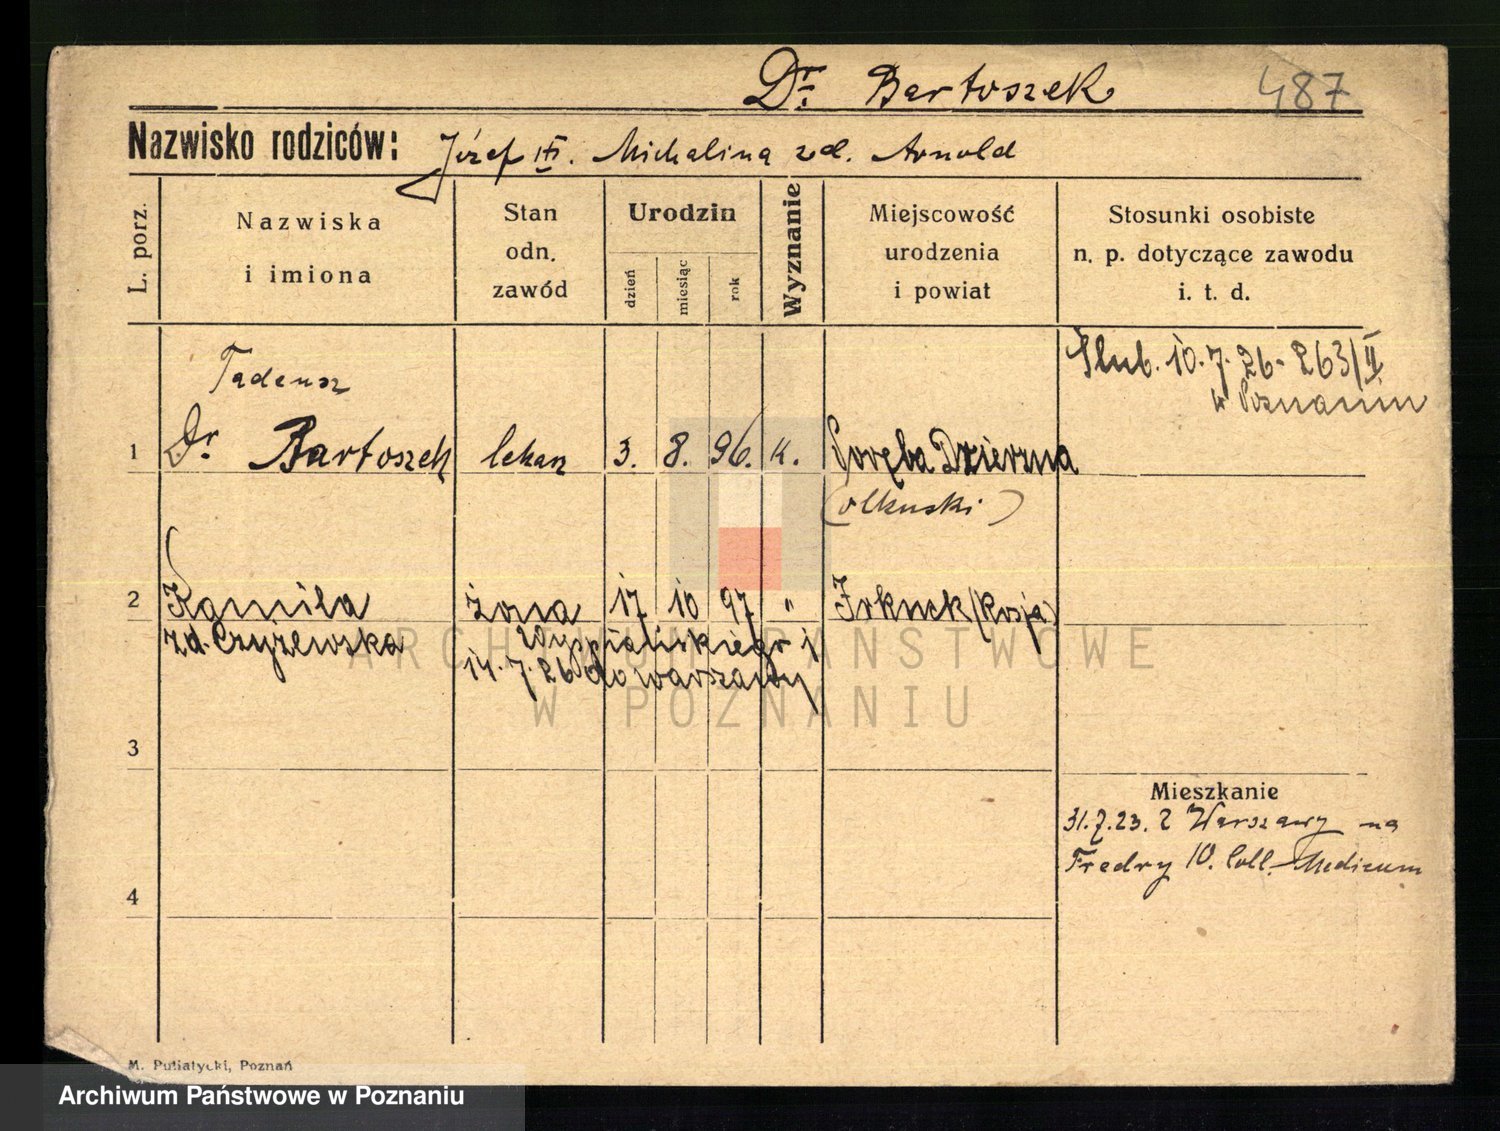 Dr. Bartoszek 487
Nazwisko rodziców: Józef i Michalina zd. Arnold
L. porz.
Nazwiska
i imiona
Stan
odn.
zawód
Urodzin
dzień
miesiąc
rok
Wyznanie
Miejscowość
urodzenia
i powiat
Stosunki osobiste
n. p. dotyczące zawodu
i. t. d.
Ślub. 10.7.26. 263/II
w Poznaniu
Tadeusz
1 Dr. Bartoszek lekarz 3. 8. 96. k. Poręba Dzierzna
(olkuski)
2 Kamila żona 17 10 97 " Irkuck (Rosja)
zd. Czyżewska Wyspiańskiego
14.7.26 do Warszawy
3
Mieszkanie
31.7.23. z Warszawy na
Fredry 10. Coll. Medicum
4
M. Putiatycki, Poznań
ARCHIWUM PAŃSTWOWE
W POZNANIU
Archiwum Państwowe w Poznaniu